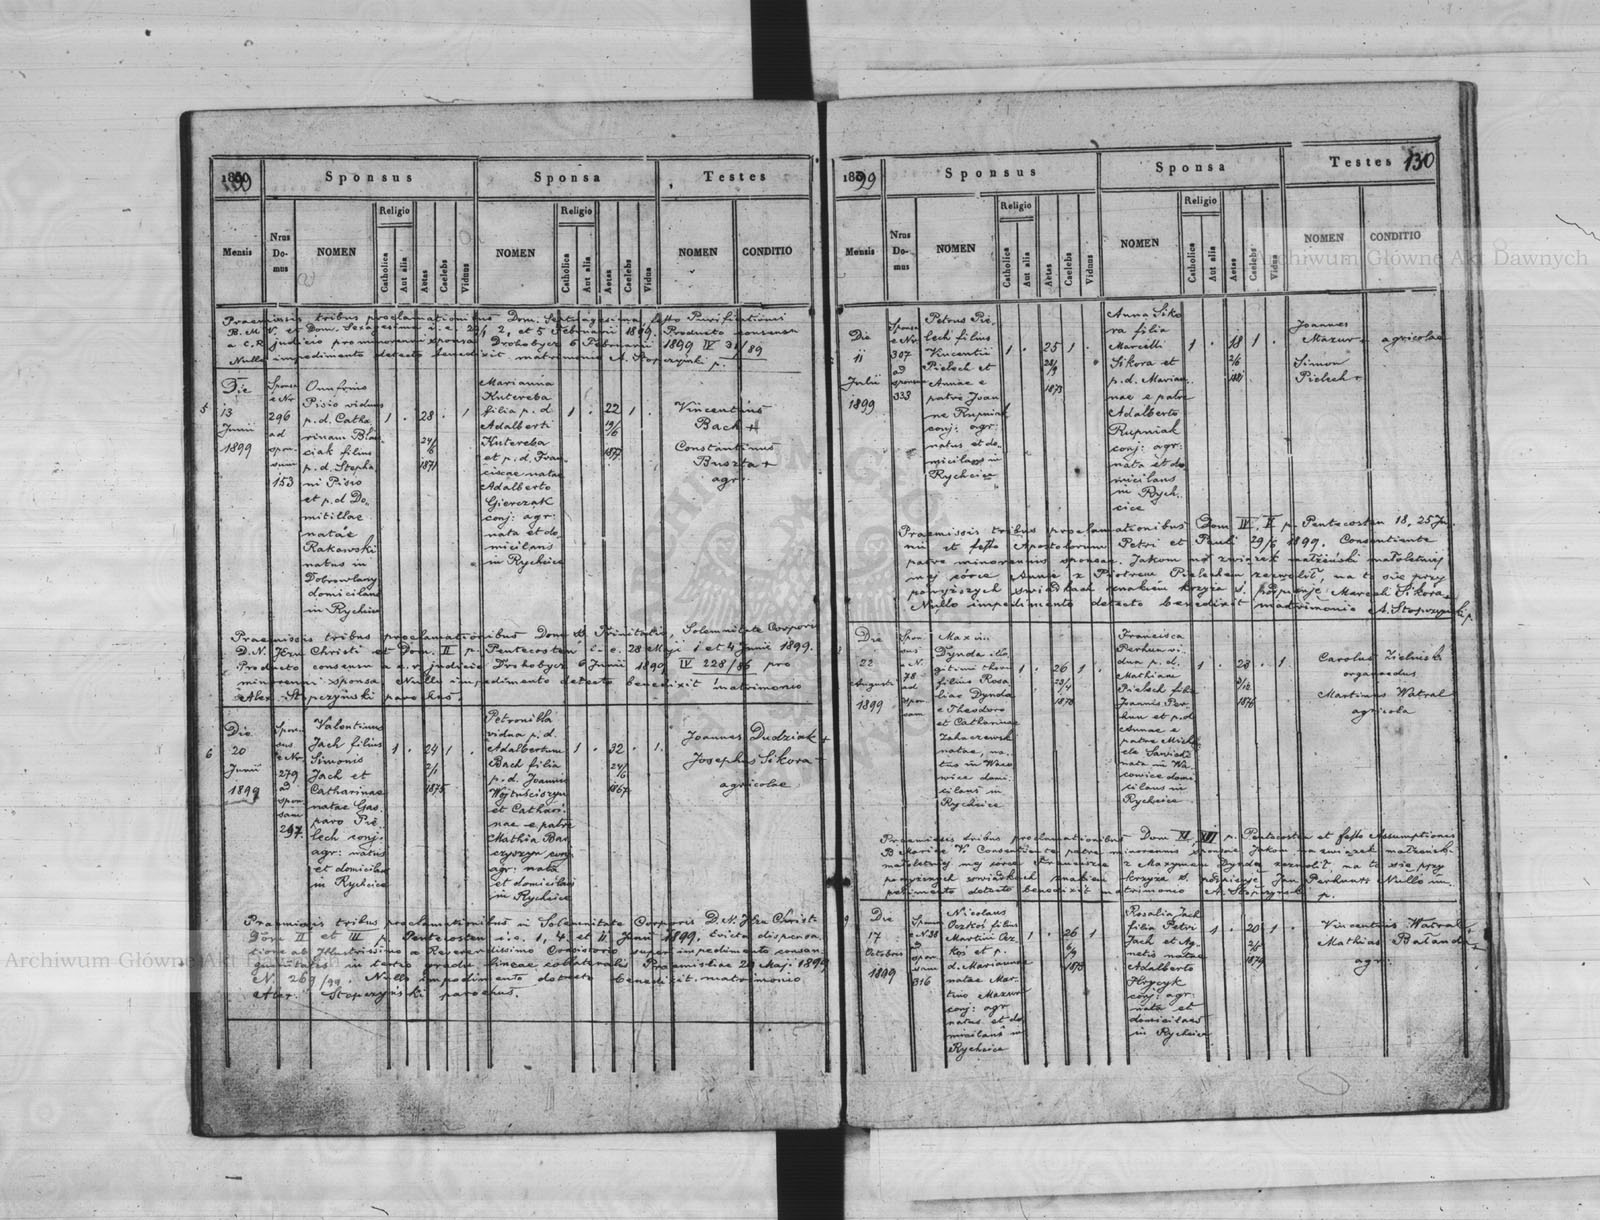 1899
Sponsus
Sponsa
Testes
Mensis
Nrus Do-mus
NOMEN
Religio
Catholica
Aut alia
Aetas
Caelebs
Viduus
NOMEN
Religio
Catholica
Aut alia
Aetas
Caelebs
Vidua
NOMEN
CONDITIO
Praemissis tribus proclamationibus Dom. Septuagesima, festo Purificationis
B. M. V. et Dom. Sexagesima i. e. 2, et 5 Februarii 1899. Producto consensu
a c. r. judicio pro minorenni sponsa Drohobycz 6 Februarii 1899 IV 31/89
Nullo impedimento detecto benedixit matrimonio A. Stopczyński p.
5
Die
13
Junii
1899
Sponsi
e Nr
296
ad
spon-
sam
153
Onufrius
Pisio viduus
p. d. Catha
rinam Bła-
ciak filius
p. d. Stepha
ni Pisio
et p. d Do
mitillae
natae
Rakowski
natus in
Dobrowlany
domicilans
in Rychcice
1 . 28 . 1
24/6
1871
Marianna
Kutereba
filia p. d
Adalberti
Kutereba
et p. d. Fran
ciscae natae
Adalberto
Gierczak
conj: agr:
nata et do
micilans
in Rychcice
1 . 22 1 .
19/6
1877
Vincentius
Bach +
Constantinus
Buszta +
agr:
Praemissis tribus proclamationibus Dom SS Trinitatis, Solemnitate Corporis
D. N. Jesu Christi et Dom. II p. Pentecosten i. e. 28 Maji 1 et 4 Junii 1899.
Producto consensu a c. r. judicio Drohobycz 6 Junii 1890 IV 228/86 pro
minorenni sponsa. Nullo impedimento detecto benedixit matrimonio
Alex. Stopczyński parochus.
6
Die
20
Junii
1899
Spon-
sus
e Nr
279
ad
spon
sam
297.
Valentinus
Jach filius
Simonis
Jach et
Catharinae
natae Gas
paro Pie
lech conj.
agr: natus
et domicilans
in Rychcice
1 . 24 1 .
2/1
1875
Petronilla
vidua p. d.
Adalbertum
Bach filia
p. d. Joannis
Wojtuściszyn
et Cathari
nae e patre
Mathia Bar
czyszyn conj
agr: nata
et domicilans
in Rychcice
1 . 32 . 1.
24/6
1867
Joannes Dudziak +
Josephus Sikora +
agricolae
Praemissis tribus proclamationibus in Solemnitate Corporis D. N. Jesu Christi
Dom II et III p. Pentecosten i. e. 1, 4 et 11 Junii 1899.
tione ab Illustrissimo a Reverendissimo Consistorio super impedimento consan
in tertio gradu lineae collateralis Premisliae 29 Maji 1899
Nullo impedimento detecto benedixit matrimonio
Alex: Stopczyński parochus.
1899
Sponsus
Sponsa
Testes
130
Mensis
Nrus Do-mus
NOMEN
Religio
Catholica
Aut alia
Aetas
Caelebs
Viduus
NOMEN
Religio
Catholica
Aut alia
Aetas
Caelebs
Vidua
NOMEN
CONDITIO
Die
11
Julii
1899
Sponsus
e Nr
307
ad
sponsam
333
Petrus Pie-
lech filius
Vincentii
Pielech et
Annae e
patre Joan
ne Rupniak
conj: agr:
natus et do
micilans in
Rychcice
1 . 25 1 .
1873
Anna Siko
ra filia
Marcelli
Sikora et
p. d. Marian
nae e patre
Adalberto
Rupniak
conj: agr:
nata et do
micilans
in Rych-
cice
1 . 18 1 .
2/6
1881
Joannes
Mazur +
Simon
Pielech +
agricolae
Praemissis tribus proclamationibus Dom IV, V p. Pentecosten 18, 25 Ju-
nii et festo Apostolorum Petri et Pauli 29/6 1899. Consentiente
patre minorennis sponsae. Jakom na związek małżeński małoletniej
mej córce Annie z Piotrem Pielechem zezwolił, na to się przy
powyższych świadkach znakiem krzyża ś. podpisuję Marceli Sikora +
Nullo impedimento detecto benedixit matrimonio A. Stopczyński p.
Die
22
Augusti
1899
Spon
sus
e N.
78
ad
spon-
sam
Maxim
Dynda ille
gitimi thori
filius Rosa
liae Dynda
e Theodoro
et Catharinae
natae, na-
tus in Waco
wice domi-
cilans in
Rychcice
1 . 26 1 .
23/4
1873
Francisca
Perhun vi
dua p. d.
Mathiam
Pielech filia
Joannis Per
hun et p. d
Annae e
patre Mich
nata in Wa
cowice domi
cilans in
Rychcice
1 . 23 . 1
1876
Carolus Zielniski
organoedus
Martinus Watral
agricola
Praemissis tribus proclamationibus Dom XI XII p. Pentecosten et festo Assumptionis
B Mariae V. Consentiente patre minorennis sponsae Jakom na związek małżeński
małoletniej mej córce Franciszce z Maxymem Dyndą zezwolił, na to się przy
powyższych świadkach znakiem krzyża ś. podpisuję Jan Perhun + Nullo im-
pedimento detecto benedixit matrimonio A. Stopczyński
p.
9
Die
17
Octobris
1899
Sponsus
e N. 38
ad
spon
sam
316
Nicolaus
Oczkoś filius
Martini Ocz
koś et p.
d. Mariannae
natae Mar-
tino Mazur
conj: agr:
natus et do
micilans in
Rychcice
1 . 26 1
6/9
1873
Rosalia Jach
filia Petri
Jach et Ag-
netis natae
Adalberto
Hrycyk
conj: agr:
nata et
domicilans
in Rychcice
1 . 20 1 .
1879
Vincentius Watral +
Mathias Baland +
agr:
Archiwum Główne Akt Dawnych
Archiwum Główne Akt Dawnych